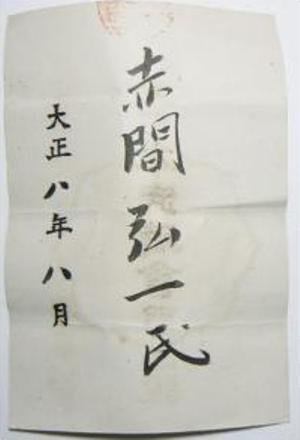 赤間弘一氏
大正八年八月